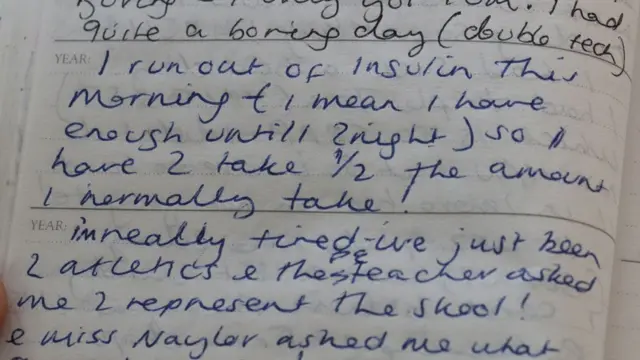 I had
quite a boring day (double tech)
YEAR: I run out of Insulin This
morning (I mean I have
enough untill 2night) so I
have 2 take 1/2 the amount
I normally take!
YEAR: im really tired-ive just been
2 atletics & the PE teacher asked
me 2 represent the skool!
& miss Naylor asked me what